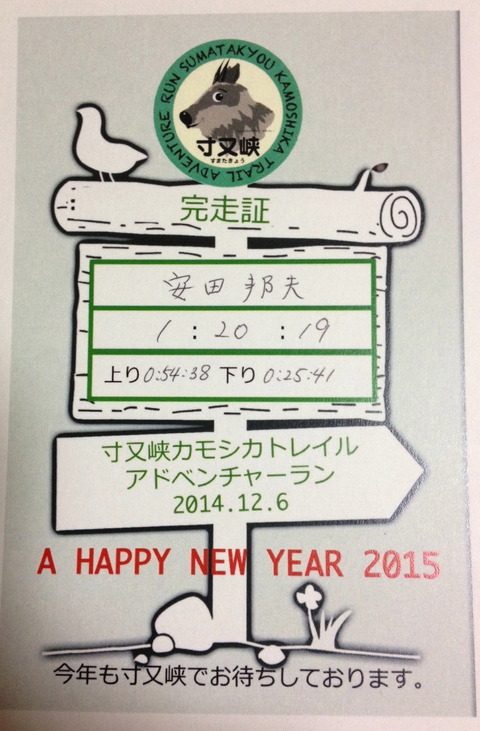 SUMATAKYOU KAMOSHIKA TRAIL ADVENTURE RUN
寸又峡
すまたきょう
完走証
安田邦夫
1:20:19
上り0:54:38 下り0:25:41
寸又峡カモシカトレイル
アドベンチャーラン
2014.12.6
A HAPPY NEW YEAR 2015
今年も寸又峡でお待ちしております。